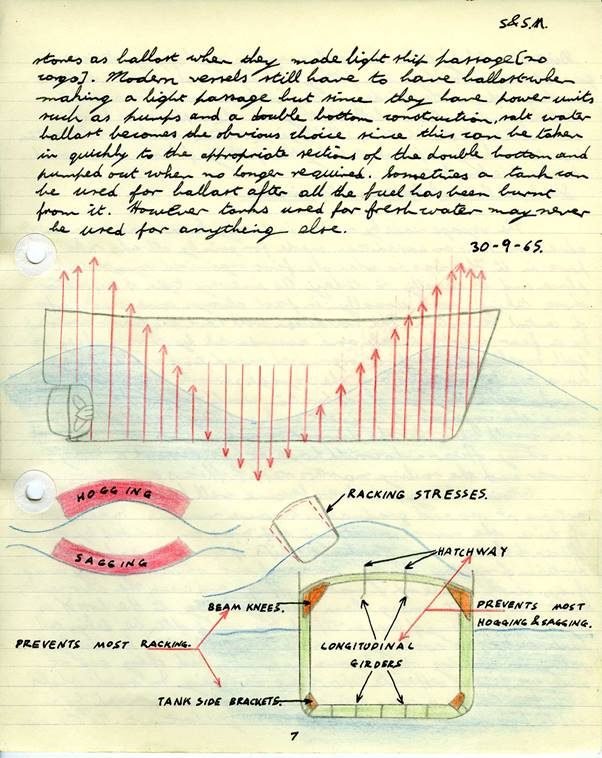 S&S.M.
stones as ballast when they made light ship passage [no
cargo]. Modern vessels still have to have ballast when
making a light passage but since they have power units
such as pumps and a double bottom construction, salt water
ballast becomes the obvious choice since this can be taken
in quickly to the appropriate sections of the double bottom and
pumped out when no longer required. Sometimes a tank can
be used for ballast after all the fuel has been burnt
from it. However tanks used for fresh water may never
be used for anything else.
30-9-65.
HOGGING
SAGGING
RACKING STRESSES.
HATCHWAY
BEAM KNEES.
PREVENTS MOST
HOGGING & SAGGING.
PREVENTS MOST RACKING.
LONGITUDINAL
GIRDERS
TANK SIDE BRACKETS.
7